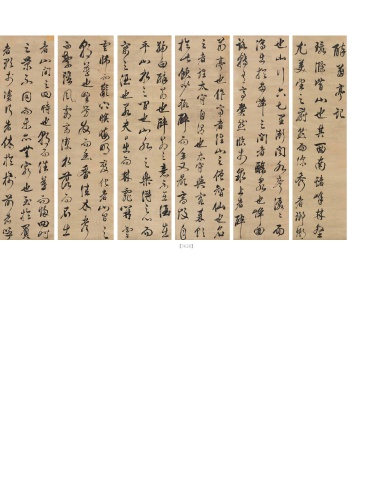 醉翁亭記
環滁皆山也其西南諸峰林壑
尤美望之蔚然而深秀者瑯琊
也山行六七里漸聞水聲潺潺而
瀉出於兩峰之間者釀泉也峰回
路轉有亭翼然臨於泉上者醉
翁亭也作亭者誰山之僧智仙也名
之者誰太守自謂也太守與客來飲
於此飲少輒醉而年又最高故自
號曰醉翁也醉翁之意不在酒在
乎山水之間也山水之樂得之心而
寓之酒也若夫日出而林霏開雲
歸而巖穴暝晦明變化者山間之
朝暮也野芳發而幽香佳木秀
而繁陰風霜高潔水落而石出
者山間之四時也朝而往暮而歸四時
之景不同而樂亦無窮也至於負
者歌於塗行者休於樹前者呼